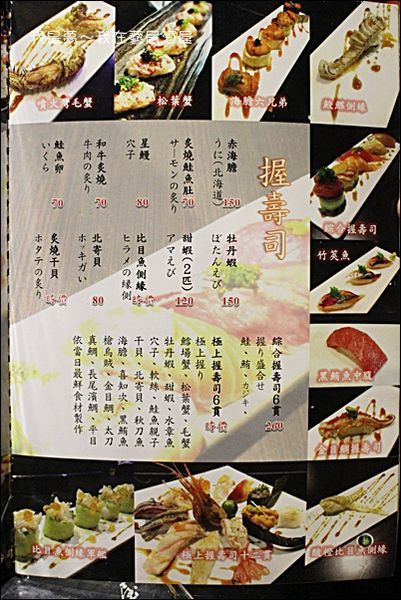 噴火灣毛蟹
松葉蟹
海膽六兄弟
鮫鰈側緣
握壽司
赤海膽
うに(北海道)
150
炙燒鮭魚肚
サーモンの炙り
70
星鰻
穴子
80
和牛炙燒
牛肉の炙り
70
鮭魚卵
いくら
70
牡丹蝦
ぼたんえび
150
甜蝦(2匹)
アマえび
120
比目魚側緣
ヒラメの縁側
時價
北寄貝
ホッキガい
80
炙燒干貝
ホタテの炙り
時價
綜合握壽司6貫
握り盛合せ
鮭、鮪、カジキ
260
極上握壽司6貫
極上握り
時價
鱈場蟹、松葉蟹、毛蟹
牡丹蝦、甜蝦、水章魚
穴子、軟絲、鮭魚親子
干貝、北寄貝、秋刀魚
海膽、喜知次、黑鮪魚
槍烏賊、金目鯛、太刀
真鯛、長尾濱鯛、平目
依當日最鮮食材製作
綜合握壽司
竹筴魚
黑鮪魚中腹
金目鯛握壽司
比目魚側緣軍艦
極上握壽司十二貫
酸橙比目魚側緣